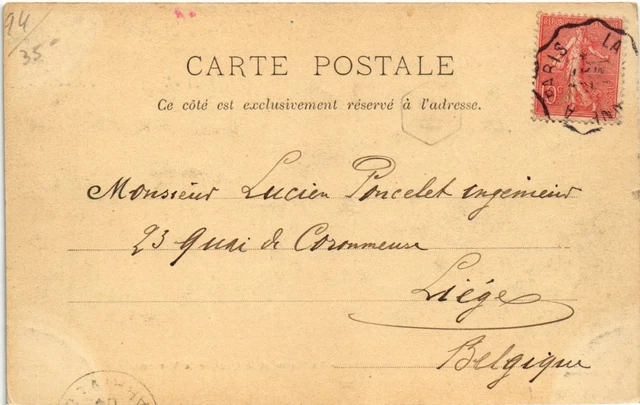 94
35
CARTE POSTALE
Ce côté est exclusivement réservé à l'adresse.
PARIS LA
Monsieur Lucien Poncelet ingenieur
23 Quai de Coronmeuse
Liége
Belgique